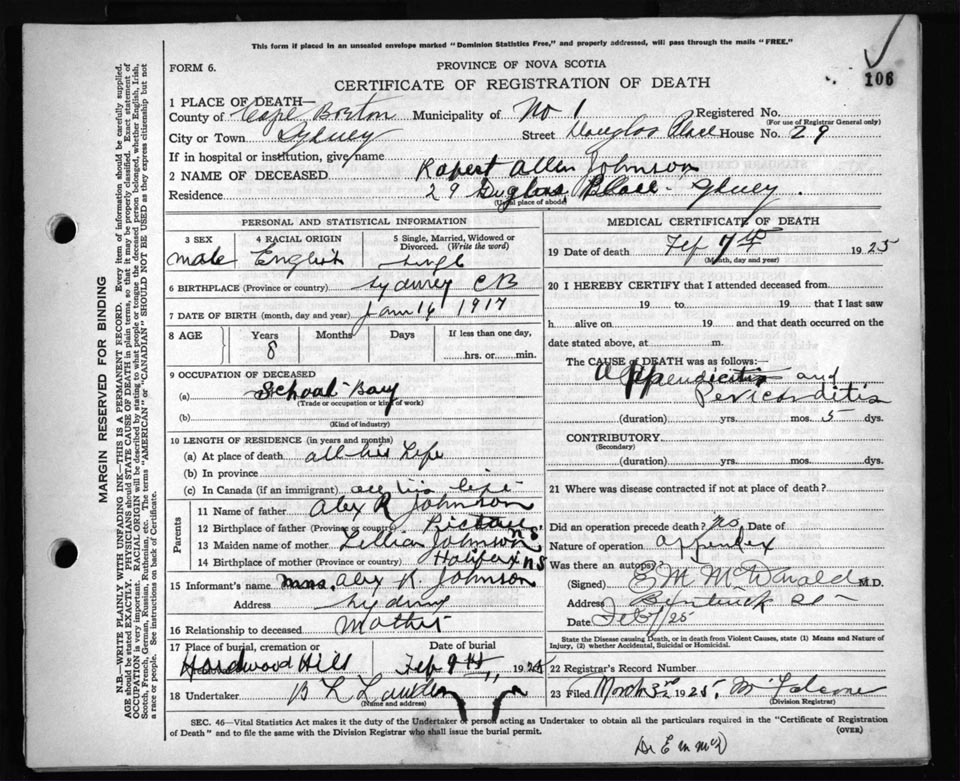 This form if placed in an unsealed envelope marked "Dominion Statistics Free," and properly addressed, will pass through the mails "FREE."
106
FORM 6.
PROVINCE OF NOVA SCOTIA
CERTIFICATE OF REGISTRATION OF DEATH
1 PLACE OF DEATH—
County of Cape Breton Municipality of No 1 Registered No.
(For use of Registrar General only)
City or Town Sydney Street Douglas Place House No. 29
If in hospital or institution, give name
2 NAME OF DECEASED Rupert Allen Johnson
Residence 29 Duglas Place Sydney.
(Usual place of abode)
PERSONAL AND STATISTICAL INFORMATION
3 SEX 4 RACIAL ORIGIN 5 Single, Married, Widowed or Divorced. (Write the word)
male English single
6 BIRTHPLACE (Province or country) Sydney CB
7 DATE OF BIRTH (month, day and year) Jan 16 1917
8 AGE Years Months Days If less than one day,
8 hrs. or min.
9 OCCUPATION OF DECEASED
(a) School Boy
(Trade or occupation or kind of work)
(b)
(Kind of industry)
10 LENGTH OF RESIDENCE (in years and months)
(a) At place of death all his Life
(b) In province
(c) In Canada (if an immigrant) all his life
Parents
11 Name of father Alex R Johnson
12 Birthplace of father (Province or country) Pictou N S
13 Maiden name of mother Lillian Johnson
14 Birthplace of mother (Province or country) Halifax N S
15 Informant's name Mrs. Alex R. Johnson
Address Sydney
16 Relationship to deceased Mother
17 Place of burial, cremation or Removal Date of burial
Hardwood Hill Feb 9th, 1925
18 Undertaker
(Name and address)
MEDICAL CERTIFICATE OF DEATH
19 Date of death Feb 7th 1925
(Month, day and year)
20 I HEREBY CERTIFY that I attended deceased from
19 to 19 that I last saw
h alive on 19 and that death occurred on the
date stated above, at m.
The CAUSE of DEATH was as follows:—
Appendicitis and
Pericarditis
(duration) yrs. mos. 5 dys.
CONTRIBUTORY
(Secondary)
(duration) yrs. mos. dys.
21 Where was disease contracted if not at place of death?
Did an operation precede death? Date of
Nature of operation appendix
Was there an autopsy?
(Signed) E M McDonald M.D.
Address Bentinck St
Date Feb 7/25
State the Disease causing Death, or in death from Violent Causes, state (1) Means and Nature of Injury, (2) whether Accidental, Suicidal or Homicidal.
22 Registrar's Record Number
23 Filed March 3rd 1925.
(Division Registrar)
SEC. 46—Vital Statistics Act makes it the duty of the Undertaker or person acting as Undertaker to obtain all the particulars required in the "Certificate of Registration
of Death" and to file the same with the Division Registrar who shall issue the burial permit.
(OVER)
Dr E M McD
MARGIN RESERVED FOR BINDING
N.B.—WRITE PLAINLY WITH UNFADING INK—THIS IS A PERMANENT RECORD. Every item of information should be carefully supplied.
AGE should be stated EXACTLY. PHYSICIANS should STATE CAUSE OF DEATH in plain terms, so that it may be properly classified. Exact statement of
OCCUPATION is very important. RACIAL ORIGIN will be described by stating to what people or tongue the deceased person belonged, whether English, Irish,
Scotch, French, German, Russian, Ruthenian, etc. The terms "AMERICAN" or "CANADIAN" SHOULD NOT BE USED as they express citizenship but not
a race or people. See instructions on back of Certificate.